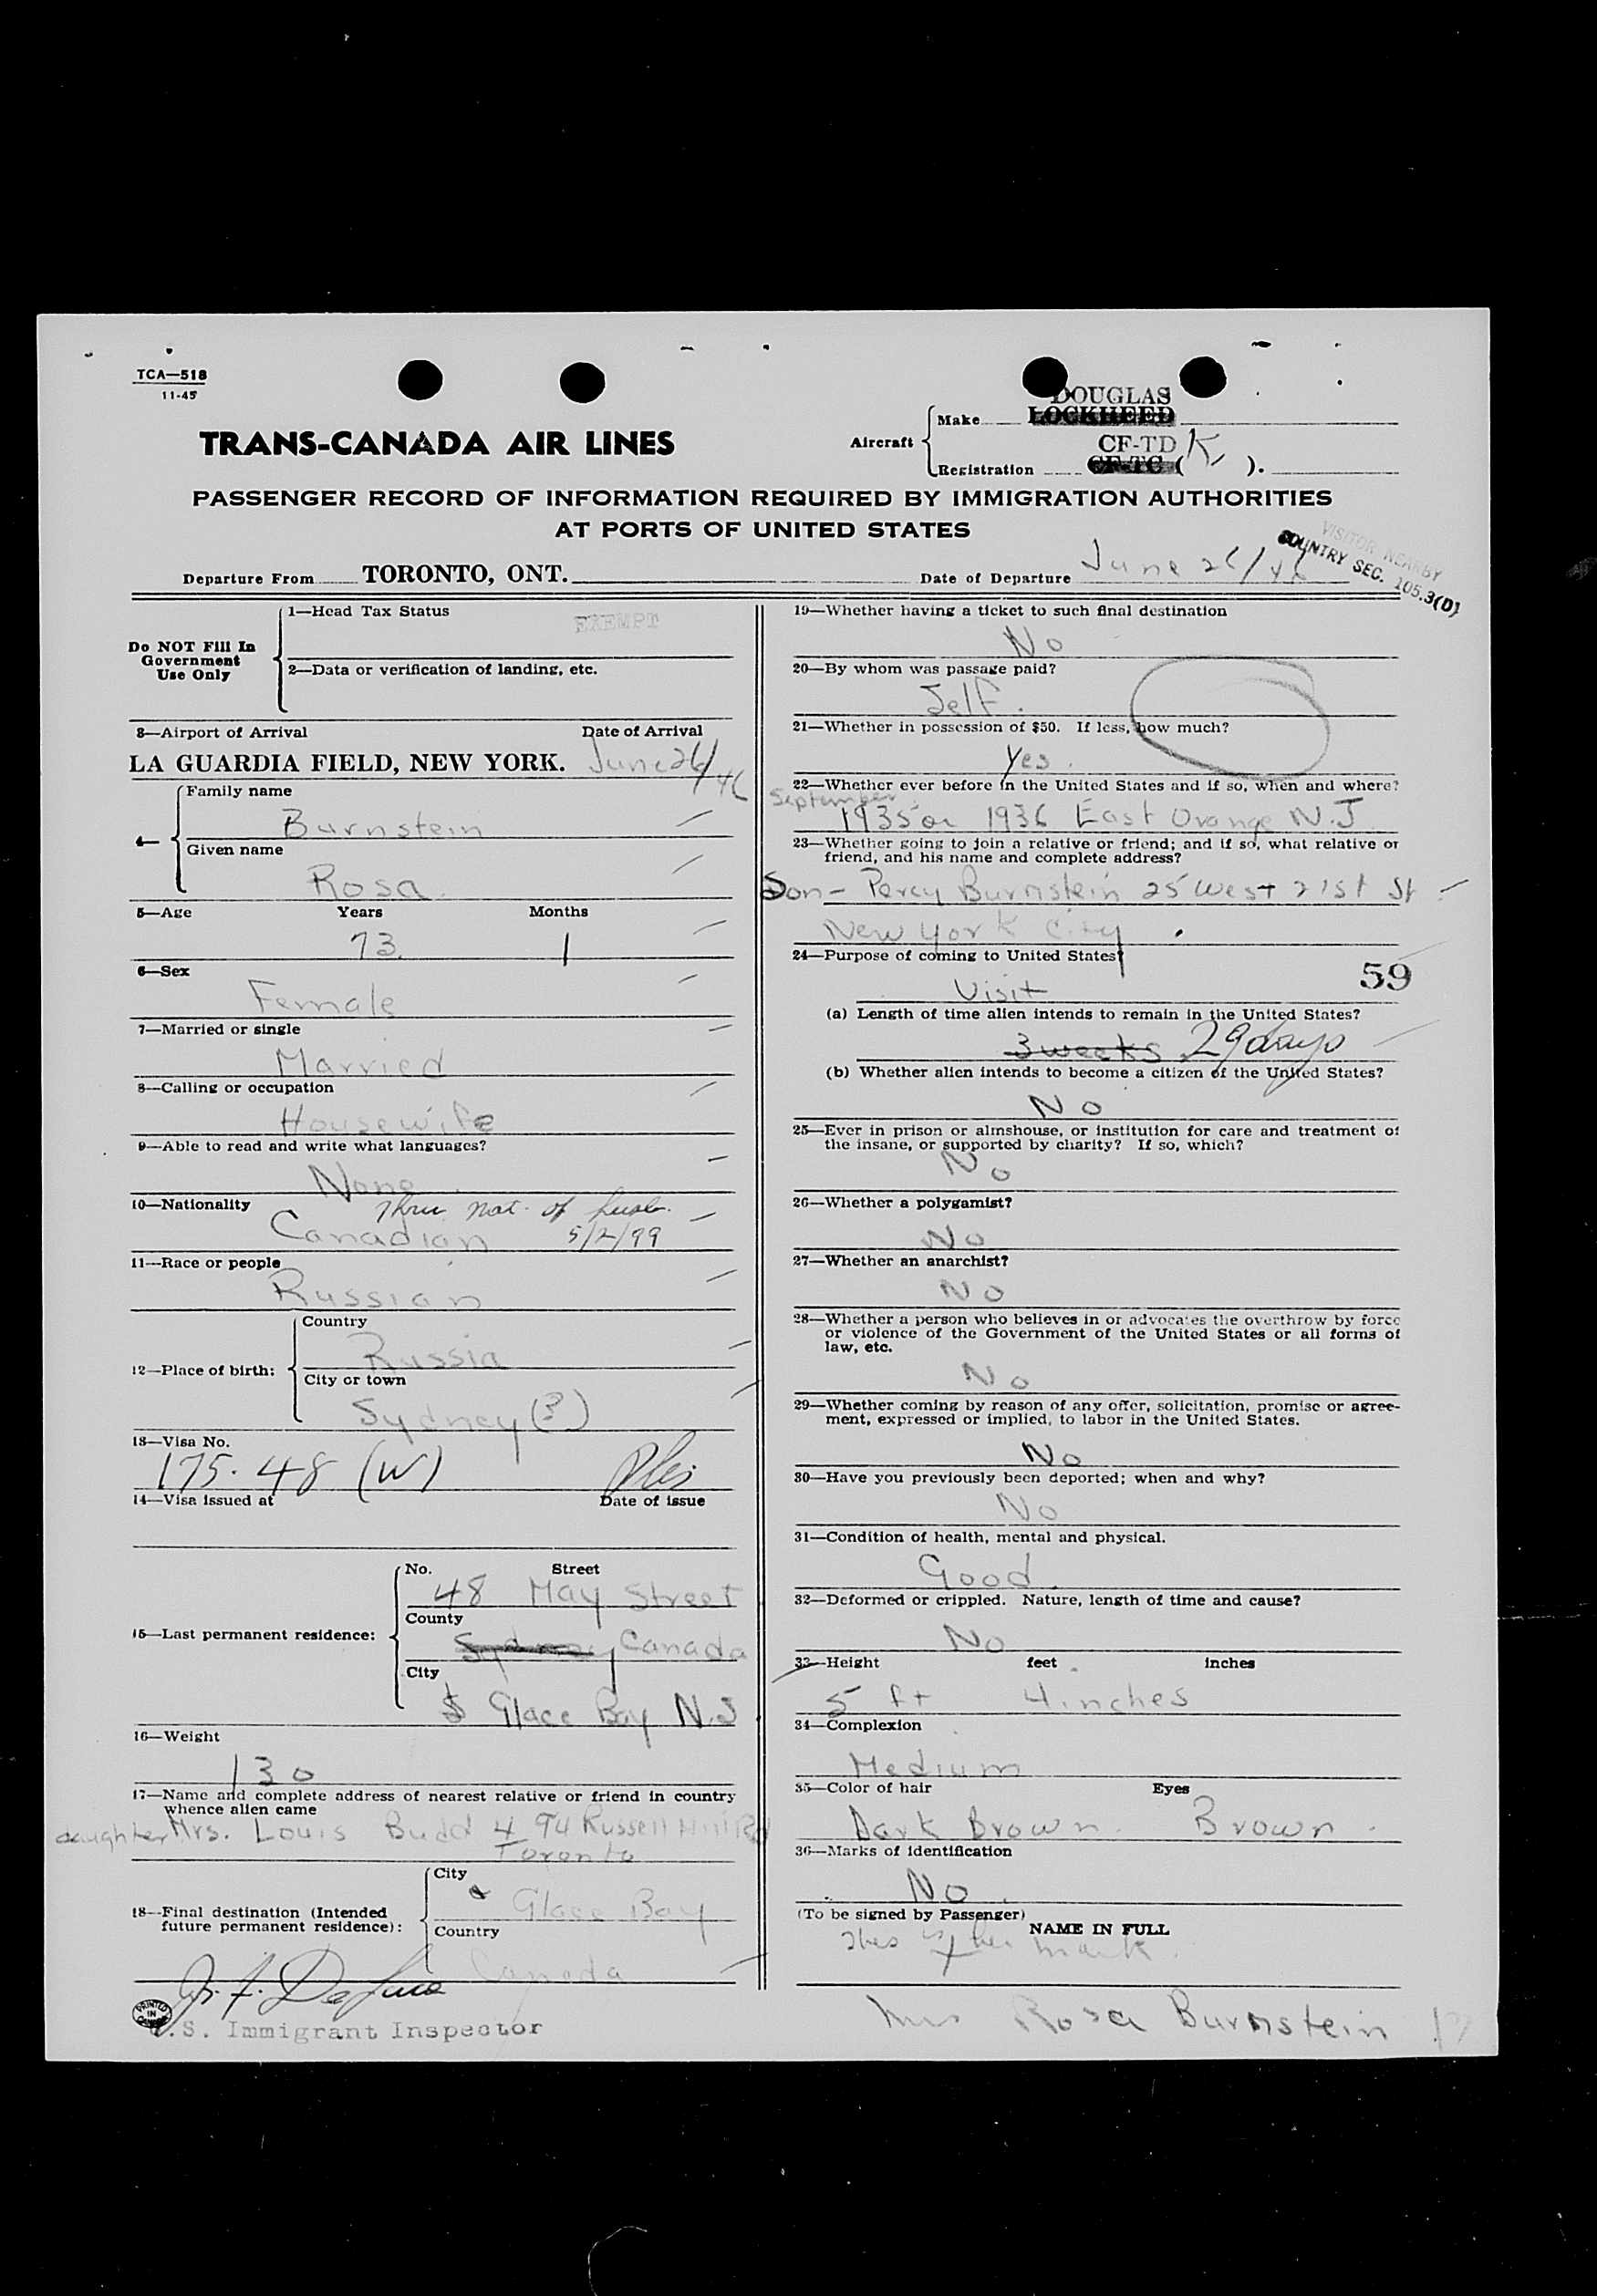 TCA—518
11-45
DOUGLAS
Aircraft
Make LOCKHEED
TRANS-CANADA AIR LINES
CF-TD K
Registration CF-TC ( ).
PASSENGER RECORD OF INFORMATION REQUIRED BY IMMIGRATION AUTHORITIES
AT PORTS OF UNITED STATES
VISITOR NEARBY
COUNTRY SEC. 105.3(D)
Departure From TORONTO, ONT. Date of Departure June 26/46
Do NOT Fill In
Government
Use Only
1—Head Tax Status
EXEMPT
2—Data or verification of landing, etc.
3—Airport of Arrival Date of Arrival
LA GUARDIA FIELD, NEW YORK. June 26/46
4—
Family name
Burnstein
Given name
Rosa
5—Age Years Months
73 1
6—Sex
Female
7—Married or single
Married
8—Calling or occupation
Housewife
9—Able to read and write what languages?
None
10—Nationality Thru nat. of husb.
Canadian 5/2/99
11—Race or people
Russian
12—Place of birth:
Country
Russia
City or town
Sydney (?)
13—Visa No.
175.48 (W)
14—Visa issued at Date of issue
15—Last permanent residence:
No. Street
48 May Street
County
Sydney Canada
City
Glace Bay N.S
16—Weight
130
17—Name and complete address of nearest relative or friend in country
whence alien came
daughter Mrs. Louis Budd 494 Russell Hill Rd
Toronto
18—Final destination (Intended
future permanent residence):
City
Glace Bay
Country
Canada
PRINTED
IN
CANADA
U.S. Immigrant Inspector
19—Whether having a ticket to such final destination
No
20—By whom was passage paid?
Self.
21—Whether in possession of $50. If less, how much?
Yes.
22—Whether ever before in the United States and if so, when and where?
September
1935 or 1936 East Orange N.J
23—Whether going to join a relative or friend; and if so, what relative or
friend, and his name and complete address?
Son - Percy Burnstein 25 West 21st St
New York City
24—Purpose of coming to United States?
59
Visit
(a) Length of time alien intends to remain in the United States?
3 weeks 29 days
(b) Whether alien intends to become a citizen of the United States?
No
25—Ever in prison or almshouse, or institution for care and treatment of
the insane, or supported by charity? If so, which?
No
26—Whether a polygamist?
No
27—Whether an anarchist?
No
28—Whether a person who believes in or advocates the overthrow by force
or violence of the Government of the United States or all forms of
law, etc.
No
29—Whether coming by reason of any offer, solicitation, promise or agree-
ment, expressed or implied, to labor in the United States.
No
30—Have you previously been deported; when and why?
No
31—Condition of health, mental and physical.
Good
32—Deformed or crippled. Nature, length of time and cause?
No
33—Height feet inches
5 ft 4 inches
34—Complexion
Medium
35—Color of hair Eyes
Dark Brown Brown
36—Marks of identification
No
(To be signed by Passenger)
NAME IN FULL
x her mark
Mrs Rosa Burnstein